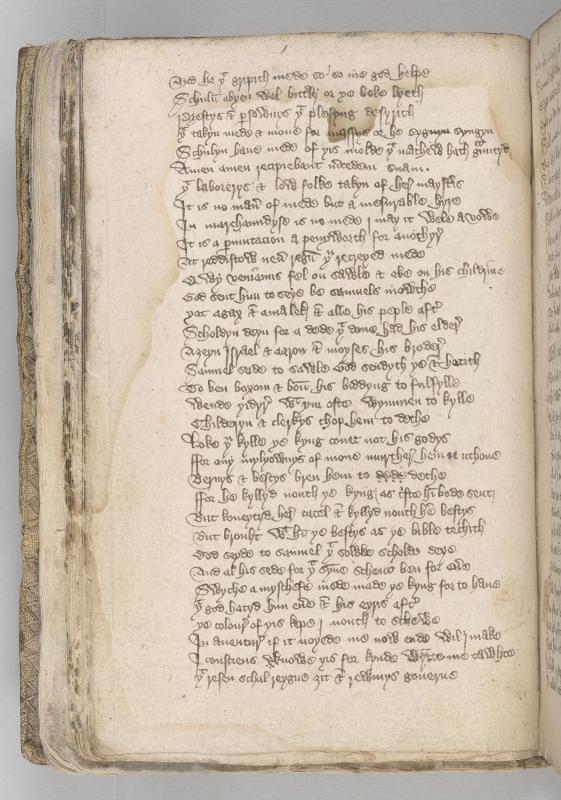 And he yt gripith mede so so me god helpe
Schuln abyen wel bittlÿ or ye boke lyeth
Prestys & psownys yt plesyng desyrith
yt takyn mede & mone for messys or he syngyn
Schulyn haue mede of yis molde yt mathew hath gūntyd
Amen amen recipiebant mcedem suam.
yt laborerys & low folke takyn of her maystrs
It is no man of mede but a mesurable hyre
In marchaundyse is no mede j may it wele avowe
It is a pmutacion a penyworth for anothyr
At reddistow neu regū yu recreyed mede
Qwy veniauns fel on sawle & eke on his childrine
God sent him to seye be samuels mowthe
yat agag & amalek & alle his peple aftr
Scholdyn deyn for a dede yt done had his elderis
Azeyn Israel & aaron & moyses his broder
Samuel sede to sawle God sendyth ye & hotith
To ben boxom & boun his biddyng to fulfylle
Wende yidyr wt yin oste wymmen to kylle
Childeryn & cherlys chop hem to dethe
Loke yu kylle ye kyng couet not his godys
ffor any mylyownys of mone murther hem ilchone
Bernys & bestys bren hem to dethe
ffor he kyllyd nouth ye kyng as cste hī bode sent
But coueytyd her catel & kyllyd nouth he bestys
But brouht wt hī ye bestys as ye bible techith
God seyde to samuel yt sowle scholde deye
And al his sede for yt syne schenct ben for eue
Swyche a myschefe mede made ye kyng for to haue
yt god hatyd him eue & his eyris aftr
ye colour of yis kepe j nouth to schewe
In auentur if it noyede me now ende wil j make
I consciens knowe yis for kynde wytte me tawhte
yt reson schal reygne zit & rewmys gouerne